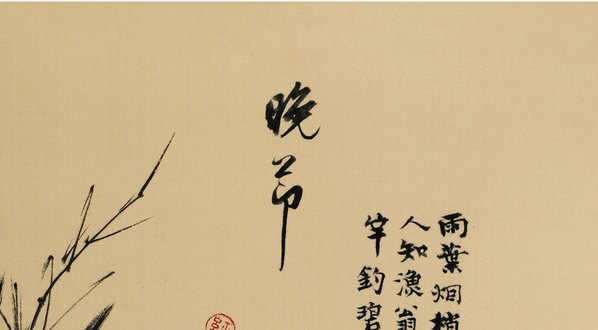 晚节
雨葉烟梢
人知漁翁
竿釣碧